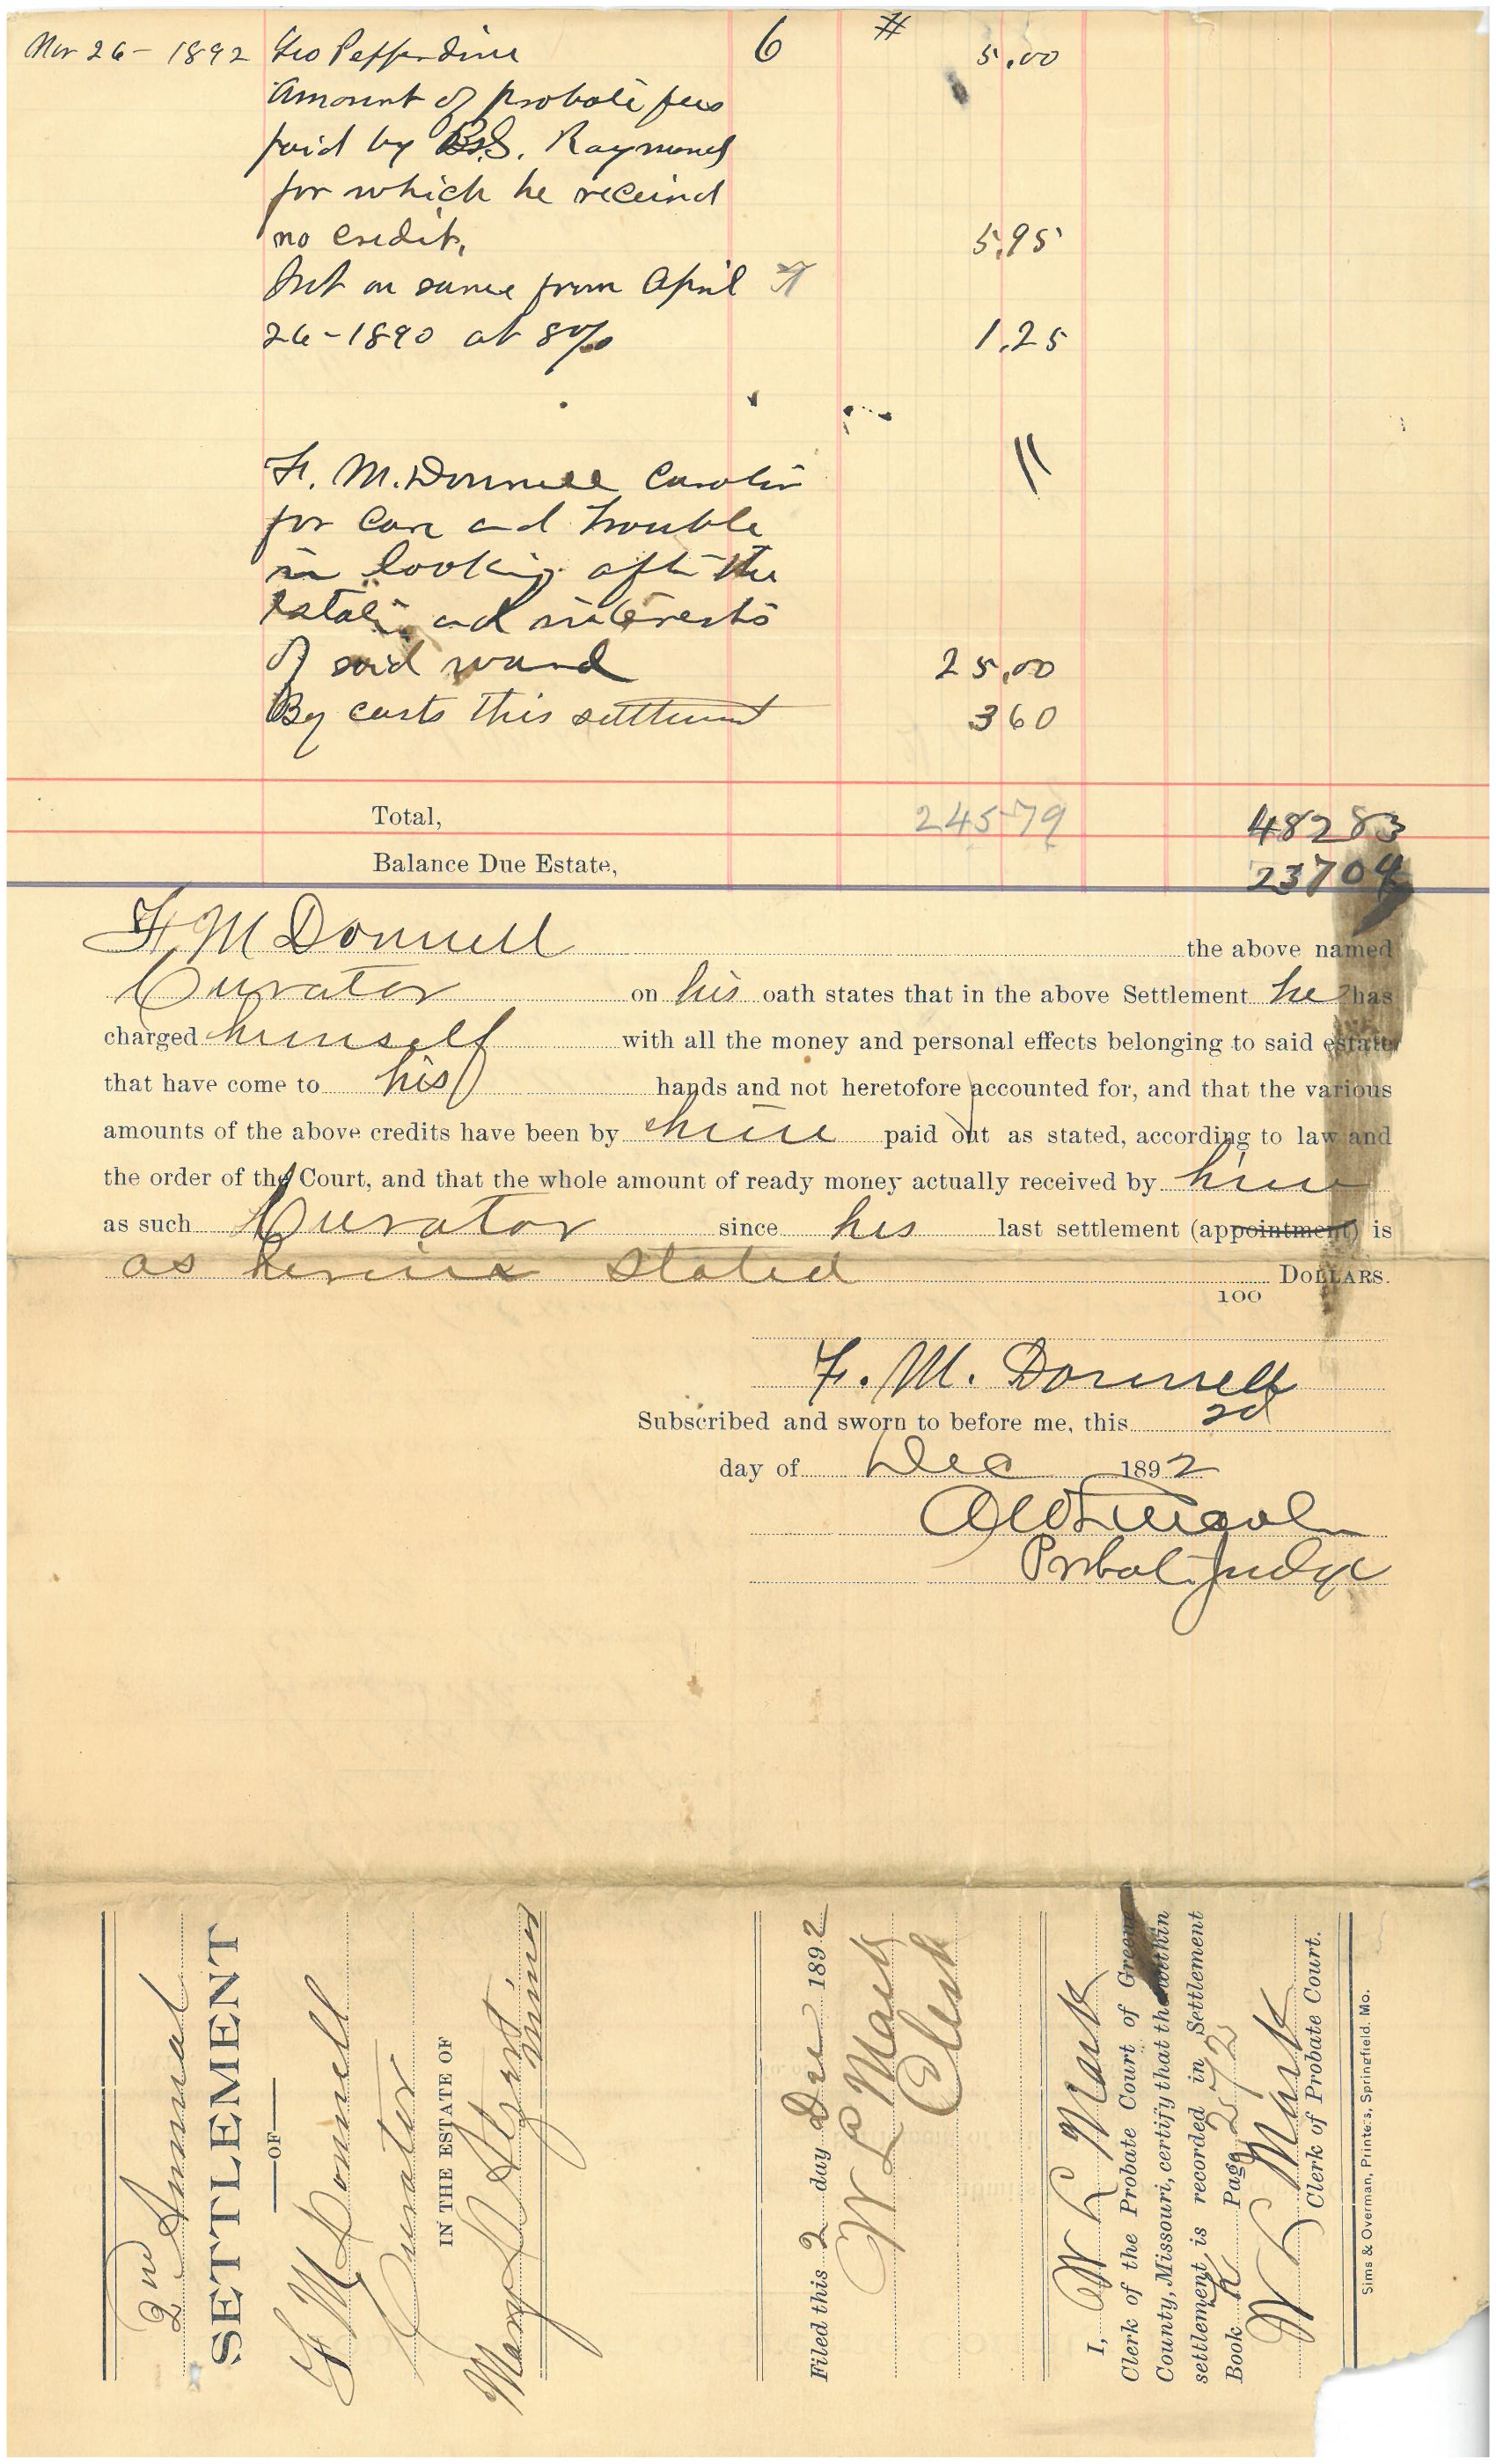 Nov 26 - 1892 Geo Pepperdine 6 # 5.00
Amount of probate fees
paid by B.S. Raymond
for which he receivd
no credit, 5.95
Int on same from April
26 - 1890 at 8% 1.25
F. M. Donnell Curator
for care and trouble
in looking after the
Estate and interests
of said ward 25.00
By costs this settlement 3 60
Total, 245 79 482 83
Balance Due Estate, 237 04
F. M Donnell the above named
Curator on his oath states that in the above Settlement he has
charged himself with all the money and personal effects belonging to said estate
that have come to his hands and not heretofore accounted for, and that the various
amounts of the above credits have been by him paid out as stated, according to law and
the order of the Court, and that the whole amount of ready money actually received by him
as such Curator since his last settlement (appointment) is
as herein stated DOLLARS.
100
F. M. Donnell
Subscribed and sworn to before me, this 2d
day of Dec 1892
Probate Judge
2nd Annual
SETTLEMENT
—OF—
F M Donnell
Curator
IN THE ESTATE OF
Mary minor
Filed this 2 day Dec 1892
W L Mack
Clerk
I, W L Mack
Clerk of the Probate Court of Greene
County, Missouri, certify that the within
settlement is recorded in Settlement
Book K Page 272
W L Mack
Clerk of Probate Court.
Sims & Overman, Printers, Springfield, Mo.